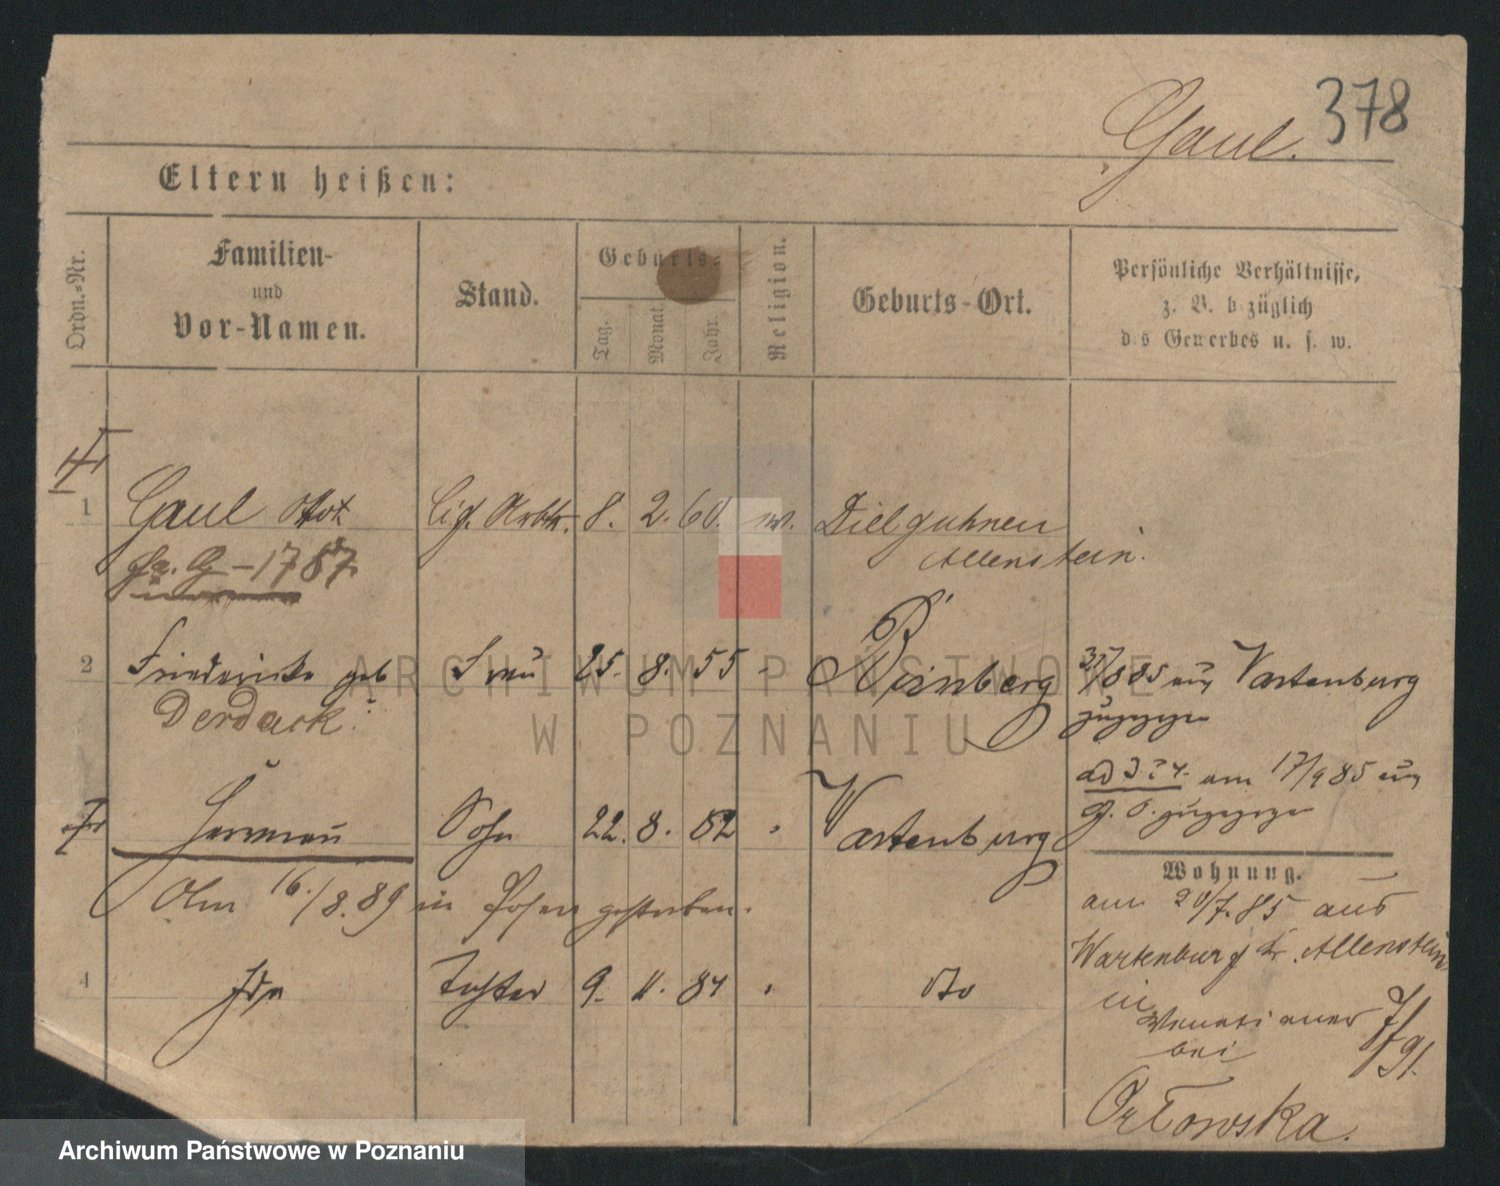 378
Gaul.
Eltern heißen:
Ordn.-Nr.
Familien-
und
Vor-Namen.
Stand.
Geburts-
Tag.
Monat.
Jahr.
Religion.
Geburts-Ort.
Persönliche Verhältnisse,
z. B. bezüglich
des Gewerbes u. s. w.
1 Gaul Cig. Arbtr. 8. 2. 60. Dielguhnen
Allenstein.
G-1787.
2 Friedericke geb Frau 25. 8. 55 Birnberg
Derdack.
85 aus Wartenburg
zugezogen
Herman Sohn 22. 8. 82 Wartenburg
am 17/9 85 aus
zugezogen
Wohnung.
16./8.89 in Posen gestorben.
am 20/7.85 aus
Wartenburg Kr. Allenstein
4 Ida Tochter 9. 11. 84 Dto
in
Venetianer 7/91.
bei
Orłowska.
ARCHIWUM PAŃSTWOWE
W POZNANIU
Archiwum Państwowe w Poznaniu